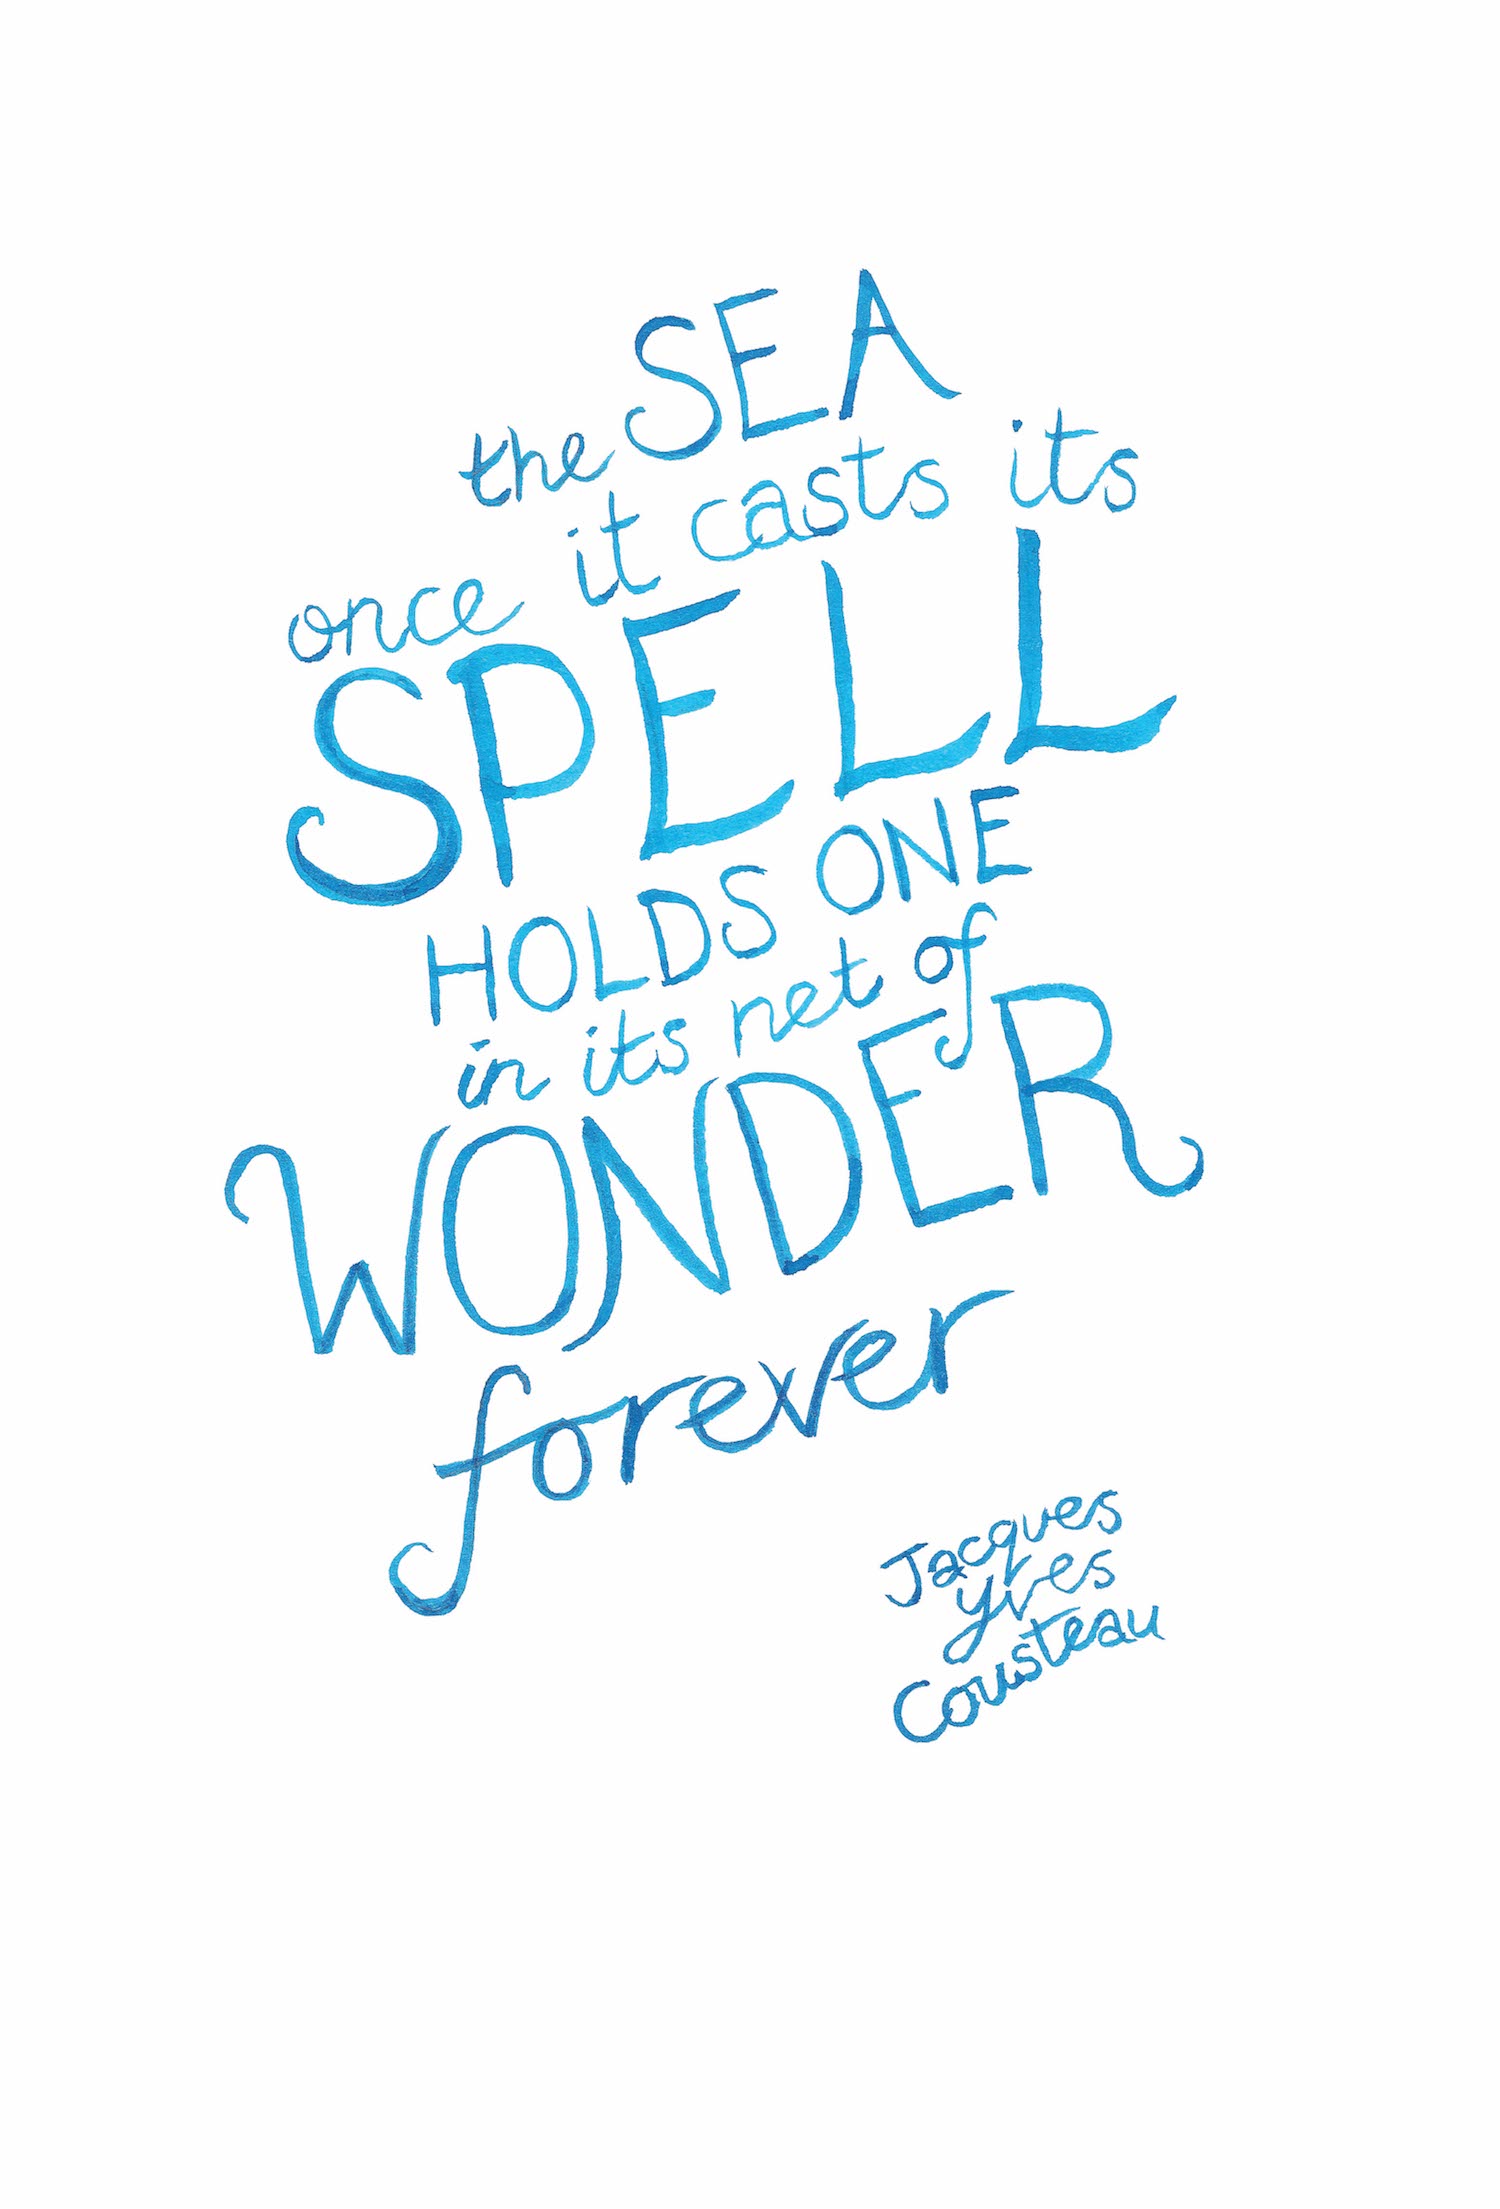 the SEA
once it casts its
SPELL
HOLDS ONE
in its net of
WONDER
forever
Jacques
Yves
Cousteau